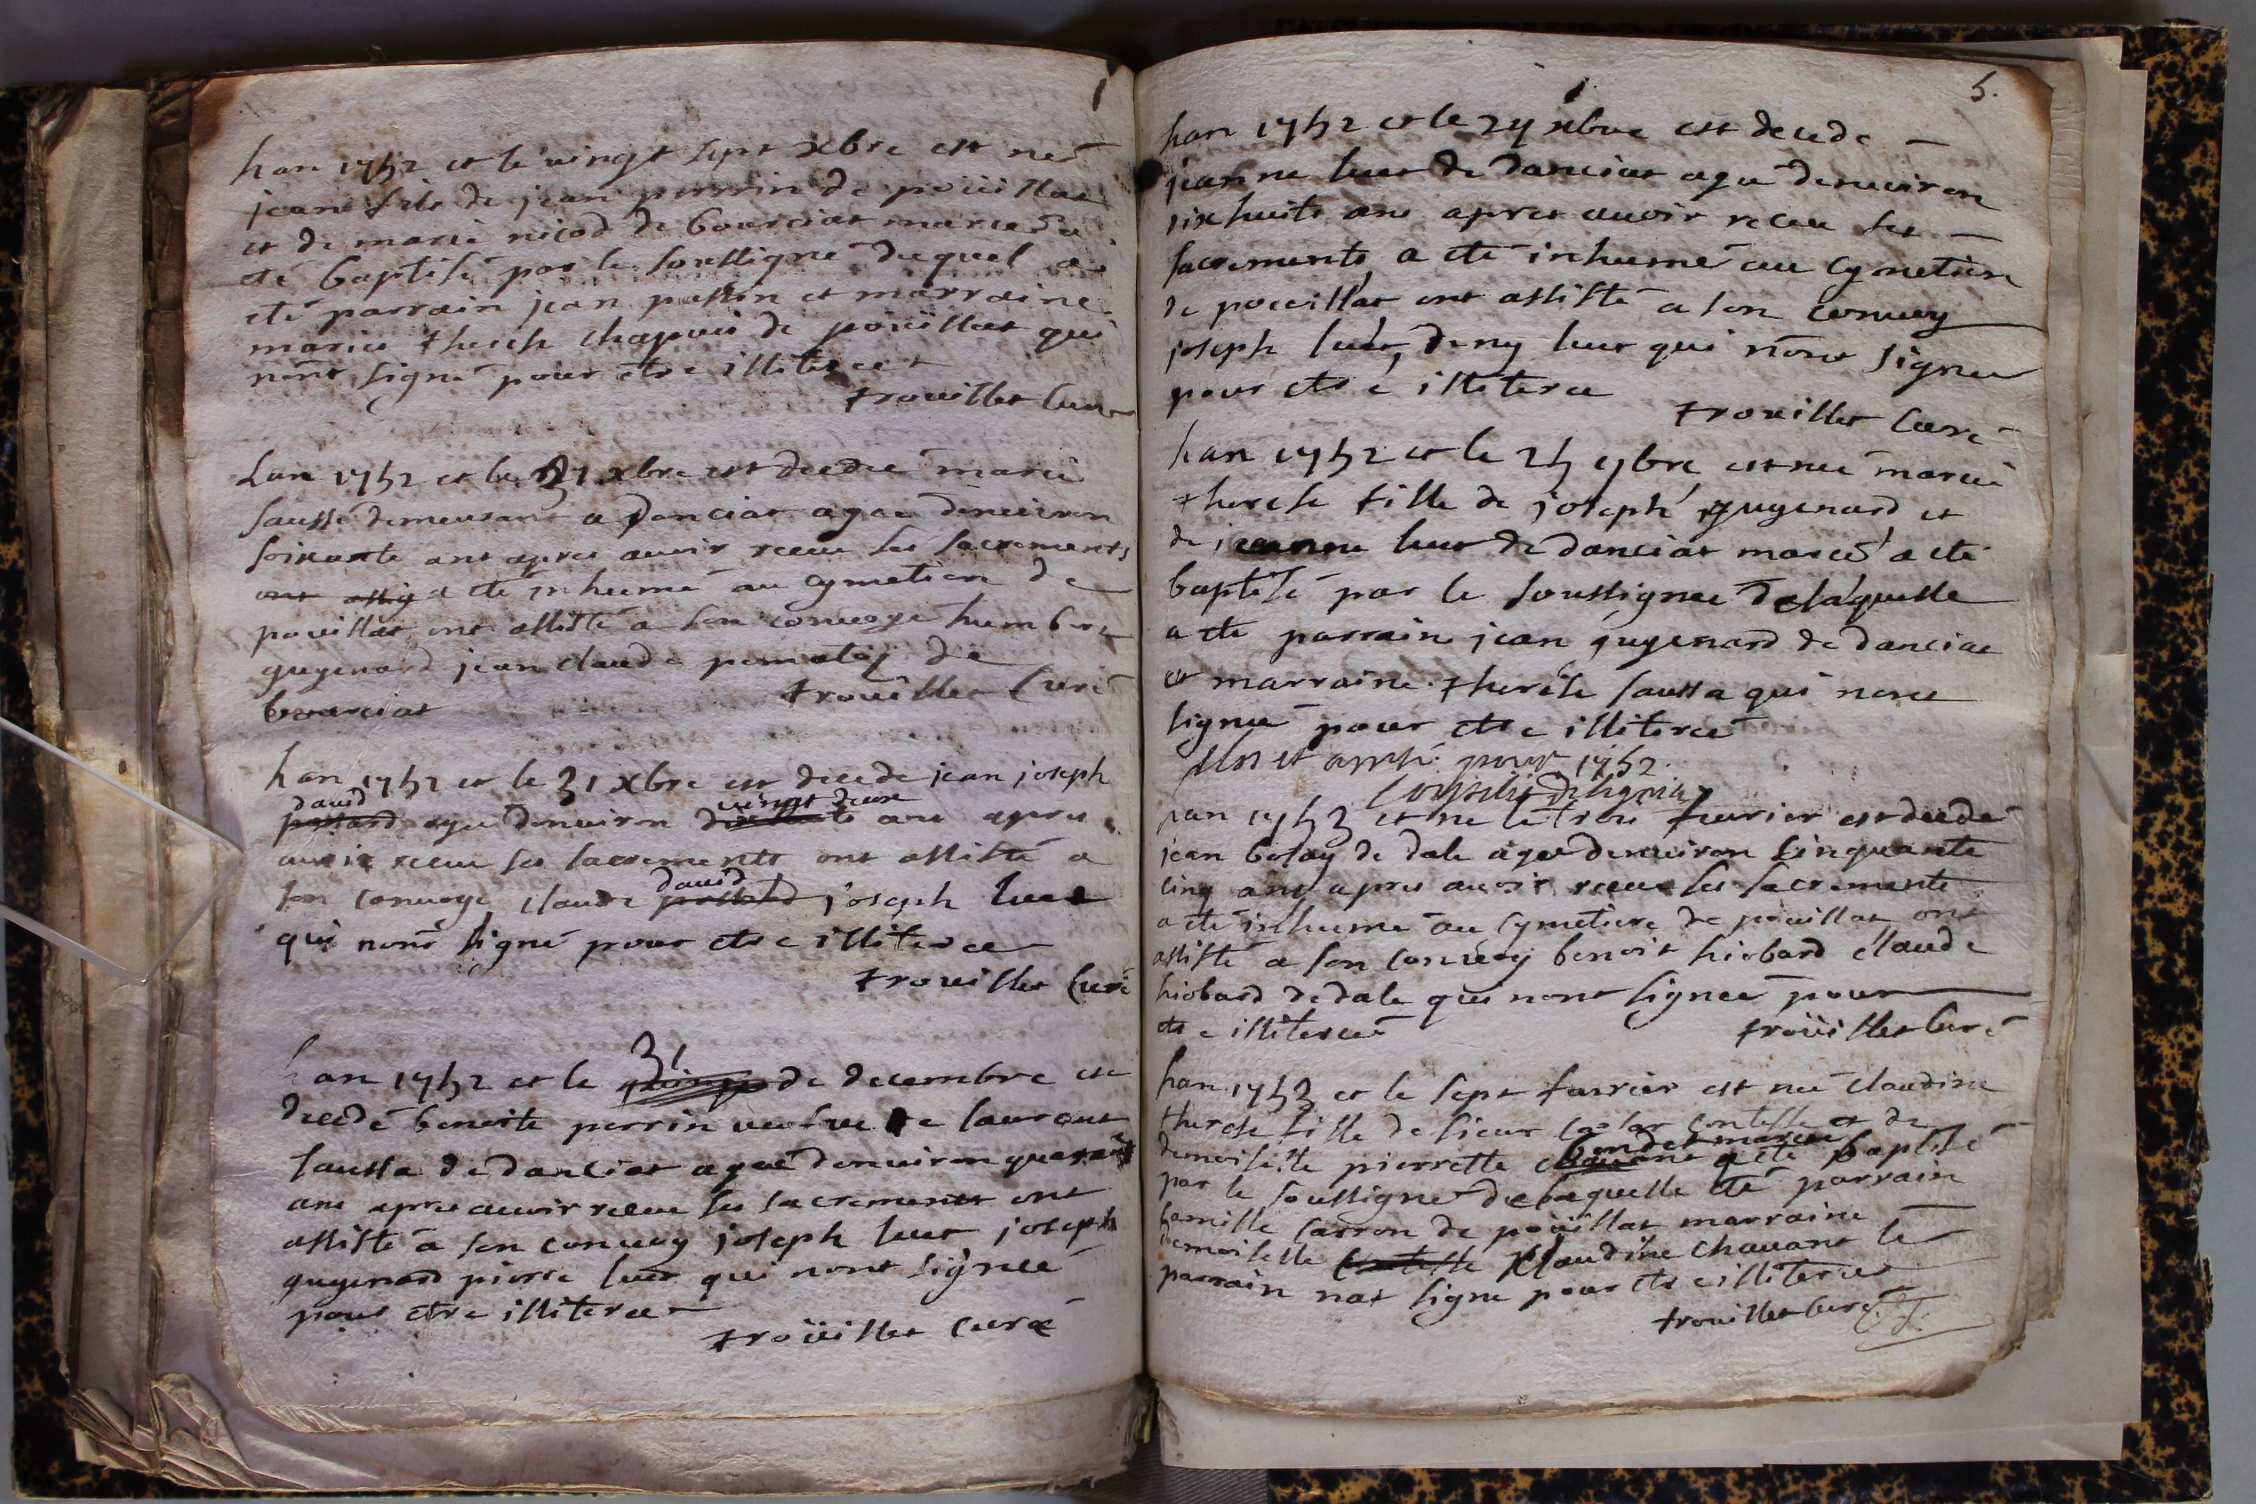 1
Lan 1752 et le vingt sept xbre est né
jean fils de jean perrin de poüillat
et de marie nicod de bourciat mariés a
eté baptisé par le soussigné duquel a
eté parrain jean perrin et marraine
marie therese chapuis de poüillat qui
nont signé pour etre illiteree
troüillet Curé
Lan 1752 et le 31 xbre est decdee marie
saussé demeurant a danciat agee denuiron
soixante ans apres auoir receu ses sacrements
ont assis a eté inhumé au cymetiere de
pouillat ont assisté a son conuoye humbert
guyenard jean claude de
bourciat
troüillet Curé
Lan 1752 et le 31 xbre est decede jean joseph
david
agé denuiron vingt deux ans apres
auoir receu ses sacrements ont assisté a
son conuoye claude david joseph luer
qui nont signé pour etre illiteree
trouillet Curé
Lan 1752 et le 31 de decembre est
decedé benoite perrin veufve de laurent
saussa de danciat agee denuiron quarante
ans apres auoir receu ses sacrements ont
assisté a son conuoy joseph luer joseph
guyenard pierre luer qui nont signée
pour etre illiteree
troüillet Curé
5.
Lan 1752 et le 29 xbre est decede
jeanne luer de danciat agee denuiron
dixhuits ans apres auoir receu ses
sacrements a eté inhumé au cymetiere
de poüillat ont assisté a son conuoy
joseph luer, deny luer qui nont signer
pour etre illiteree
trouillet Curé
Lan 1752 et le 25 9bre est née marie
therese fille de joseph guyenard et
de jeanne luer de danciat mariés a eté
baptisé par le soussignee delaquelle
a eté parrain jean guyenard de danciat
et marraine therese saussa qui nont
signé pour etre illiteree
pour 1752.
Lan 1753 et le trois feurier est decedé
jean de dale agee denuiron sinquante
cinq ans apres auoir receu ses sacrements
a eté inhumé au cymetiere de poüillat ont
assisté a son conuoy benoit hiobard claude
hiobard de dale qui nont signée pour
etre illiteree
troüillet Curé
Lan 1753 et le sept feurier est née claudine
therese fille de sieur et de
demoiselle pierrette mariés a eté baptisé
par le soussigné delaquelle eté parrain
camille carron de poüillat marraine
demoiselle Claudine Chauant le
parrain nat signé pour etre illiteree
trouillet Curé